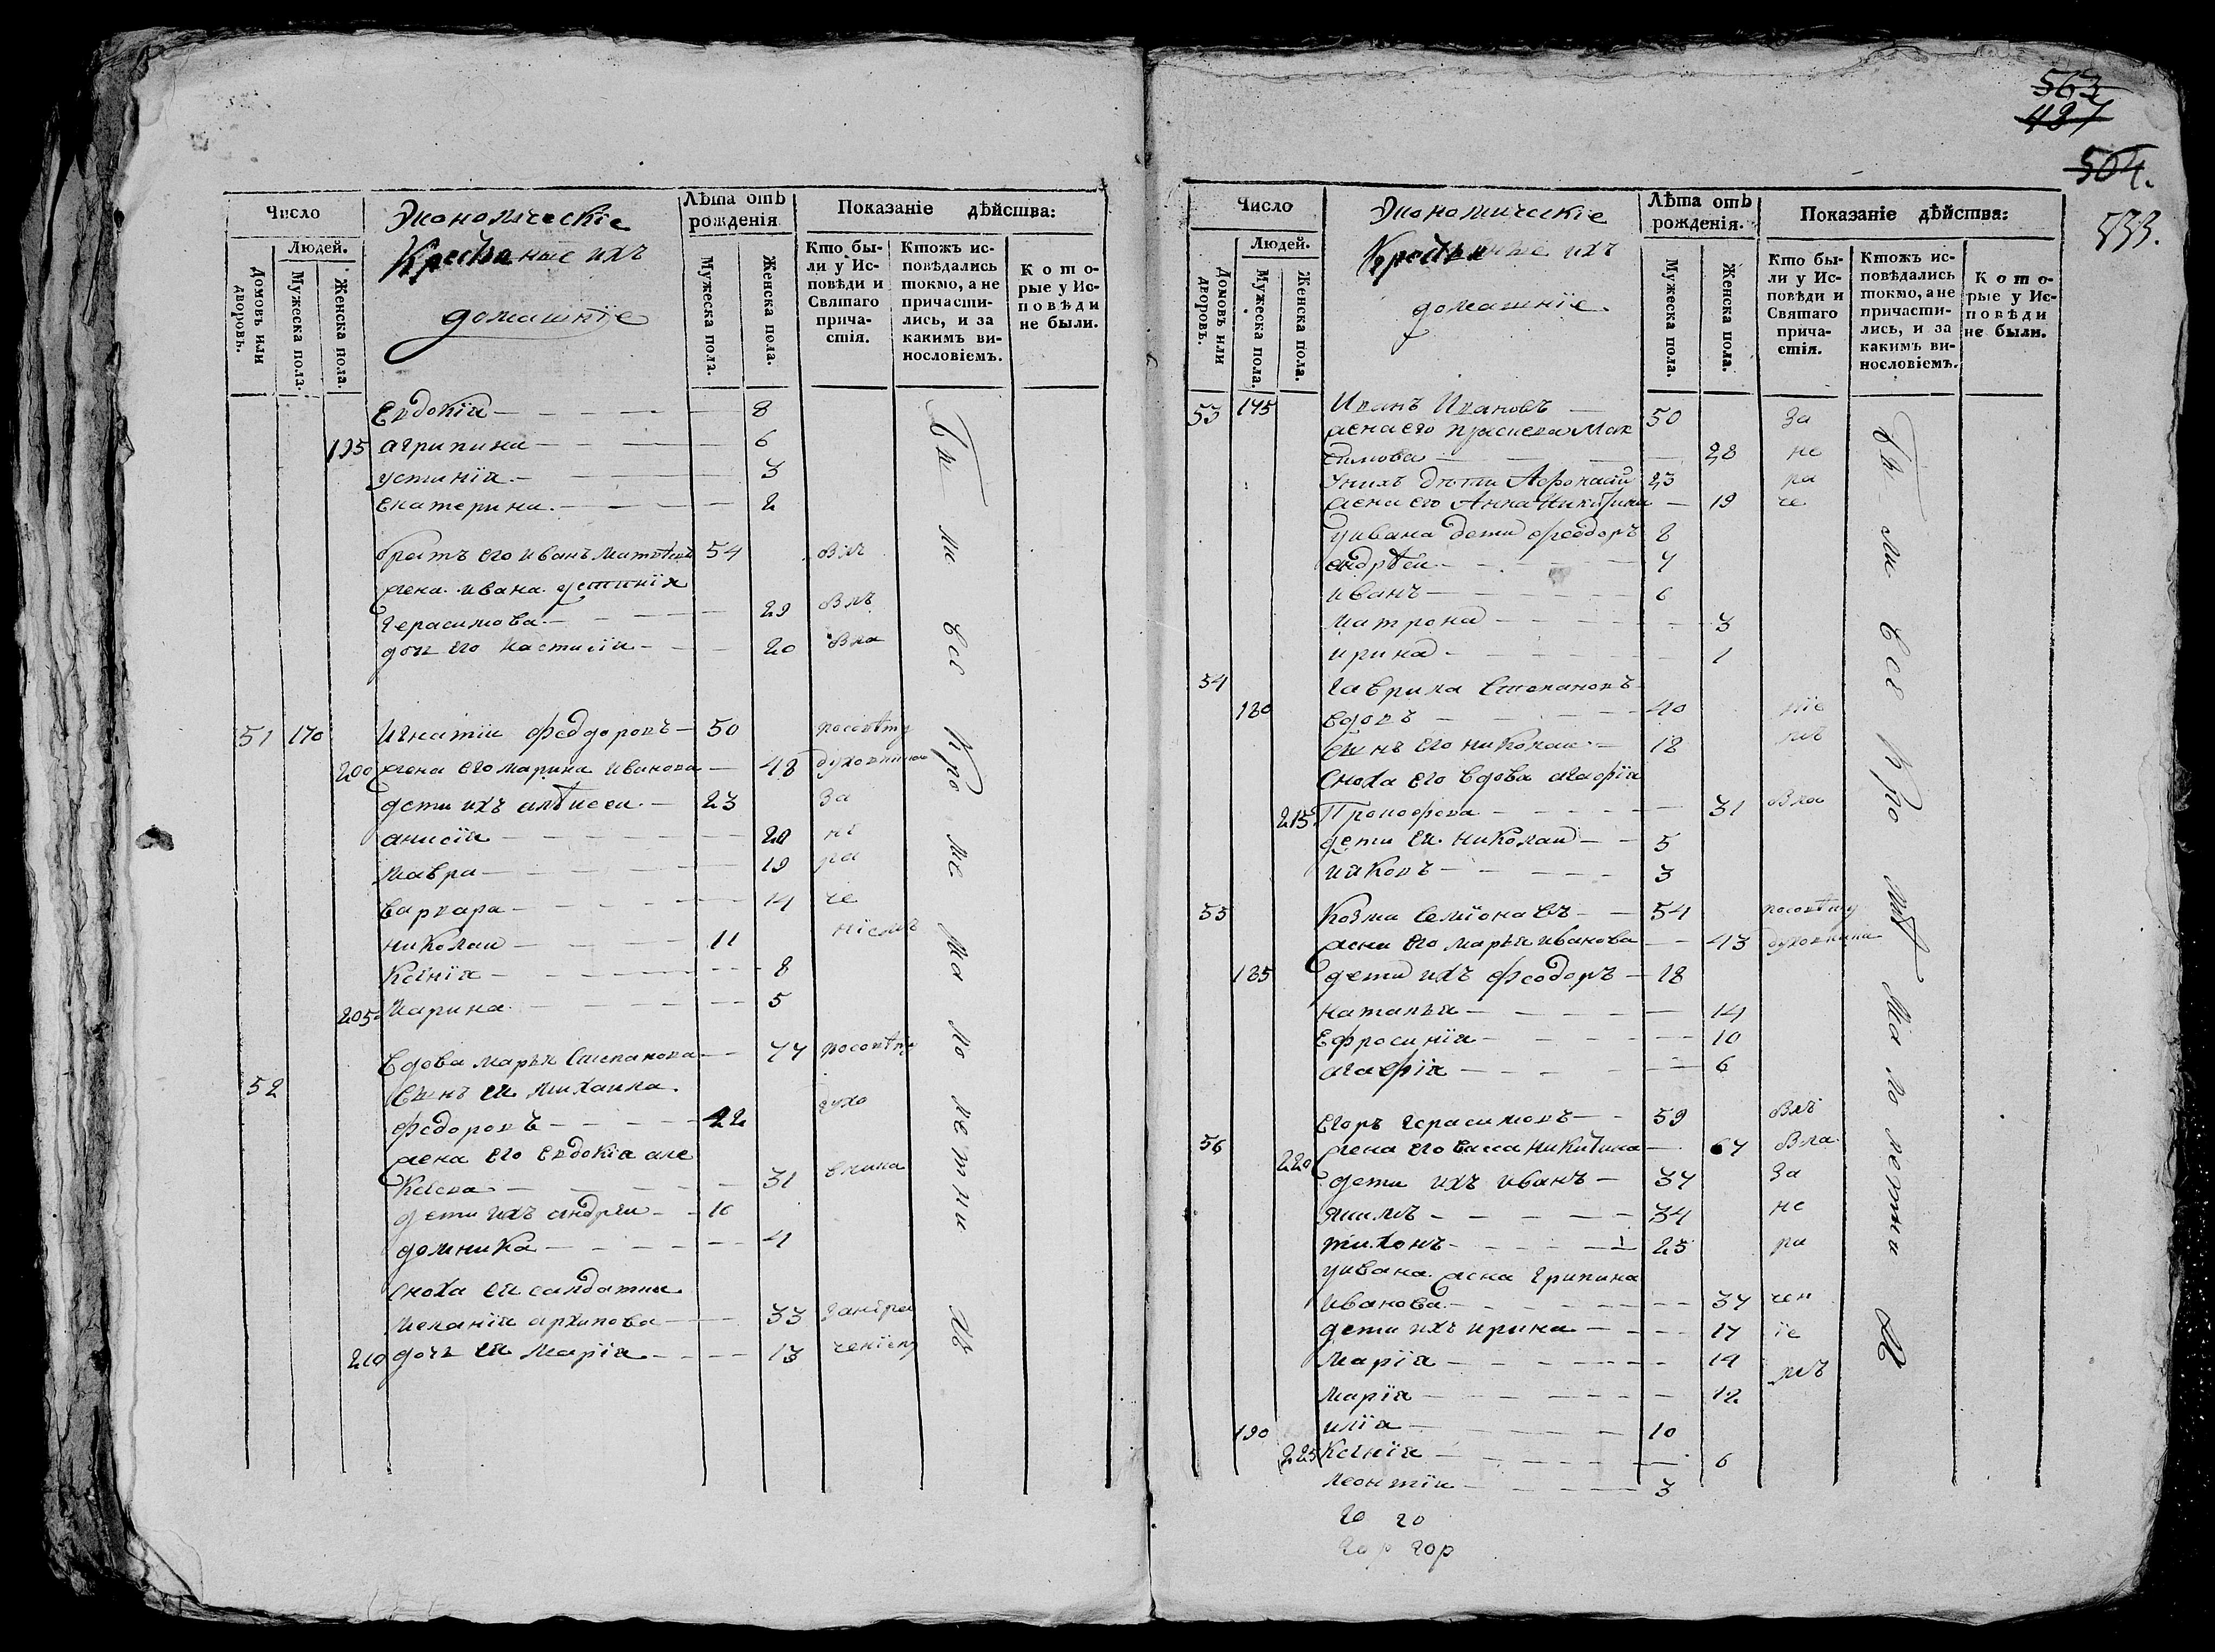 Число
Экономическіе
Крестьяные ихъ
домашніе
Лѣта отъ рожденія
Показаніе дѣйства:
Людей.
Домовъ или дворовъ.
Мужеска пола.
Женска пола.
Мужеска пола.
Женска пола.
Кто были у Исповѣди и Святаго причастія.
Ктожъ исповѣдались токмо, а не причастились, и за какимъ винословіемъ.
Которые у Исповѣди не были.
Евдокіа 8
195 агрипина 6
устиніа 3
екатерина 2
братъ его иванъ матвѣевъ 54
жена ивана устиніа
герасимова 29
дочь его настасіа 20
51 170 Игнатіи федоровъ 50
200 жена его марина иванова 48
дети ихъ алѣѯеи 23 за
анисіа 20 не
мавра 19 ра
варвара 14 че
николаи 11 ніемъ
Ксеніа 8
205 Марина 5
вдова марья степанова 77
52 сынъ ея михаила
федоровъ 42
жена его евдокіа але
Ксеева 31
дети ихъ андреи 10
домника 4
сноха ея салдатка
меланіа архипова 33
210 дочь ея маріа 13
бы ли все кро ме ма ло летни хъ
563
427
504.
533.
Число
Экономическіе
Крестьяные ихъ
домашніе
Лѣта отъ рожденія.
Показаніе дѣйства:
Людей.
Домовъ или дворовъ.
Мужеска пола.
Женска пола.
Мужеска пола.
Женска пола.
Кто были у Исповѣди и Святаго причастія.
Ктожъ исповѣдались токмо, а не причастились, и за какимъ винословіемъ.
Которые у Исповѣди не были.
53 175 Иванъ Ивановъ 50 за
жена его праскева Мак
симова 28 не
у нихъ дѣти Афонасіи 23 ра
жена его Анна Никитина 19 че
у ивана дети феодоръ 8
андрѣи 7
иванъ 6
матрона 3
ирина 1
54 гаврила степановъ
180 вдовъ 40 ніе
сынъ его николаи 18 мъ
сноха его вдова агафіа
215 Прокофева 31
дети ея николаи 5
иаковъ 3
55 Козма семіонавъ 54
жена его марья иванова 43
185 дети ихъ феодоръ 18
наталья 14
Ефросиніа 10
агафіа 6
Егоръ герасимовъ 59
56 220 жена его васса никитина 67
дети ихъ иванъ 37 за
якимъ 34 не
тихонъ 25 ра
у ивана жена грипина
иванова 37 чен
дети ихъ ирина 17 іе
маріа 14 мъ
маріа 12
190 иліа 10
225 Ксеніа 6
леонтіи 3
го го
гор гор
бы ли все кро мѣ ма ло летни хъ